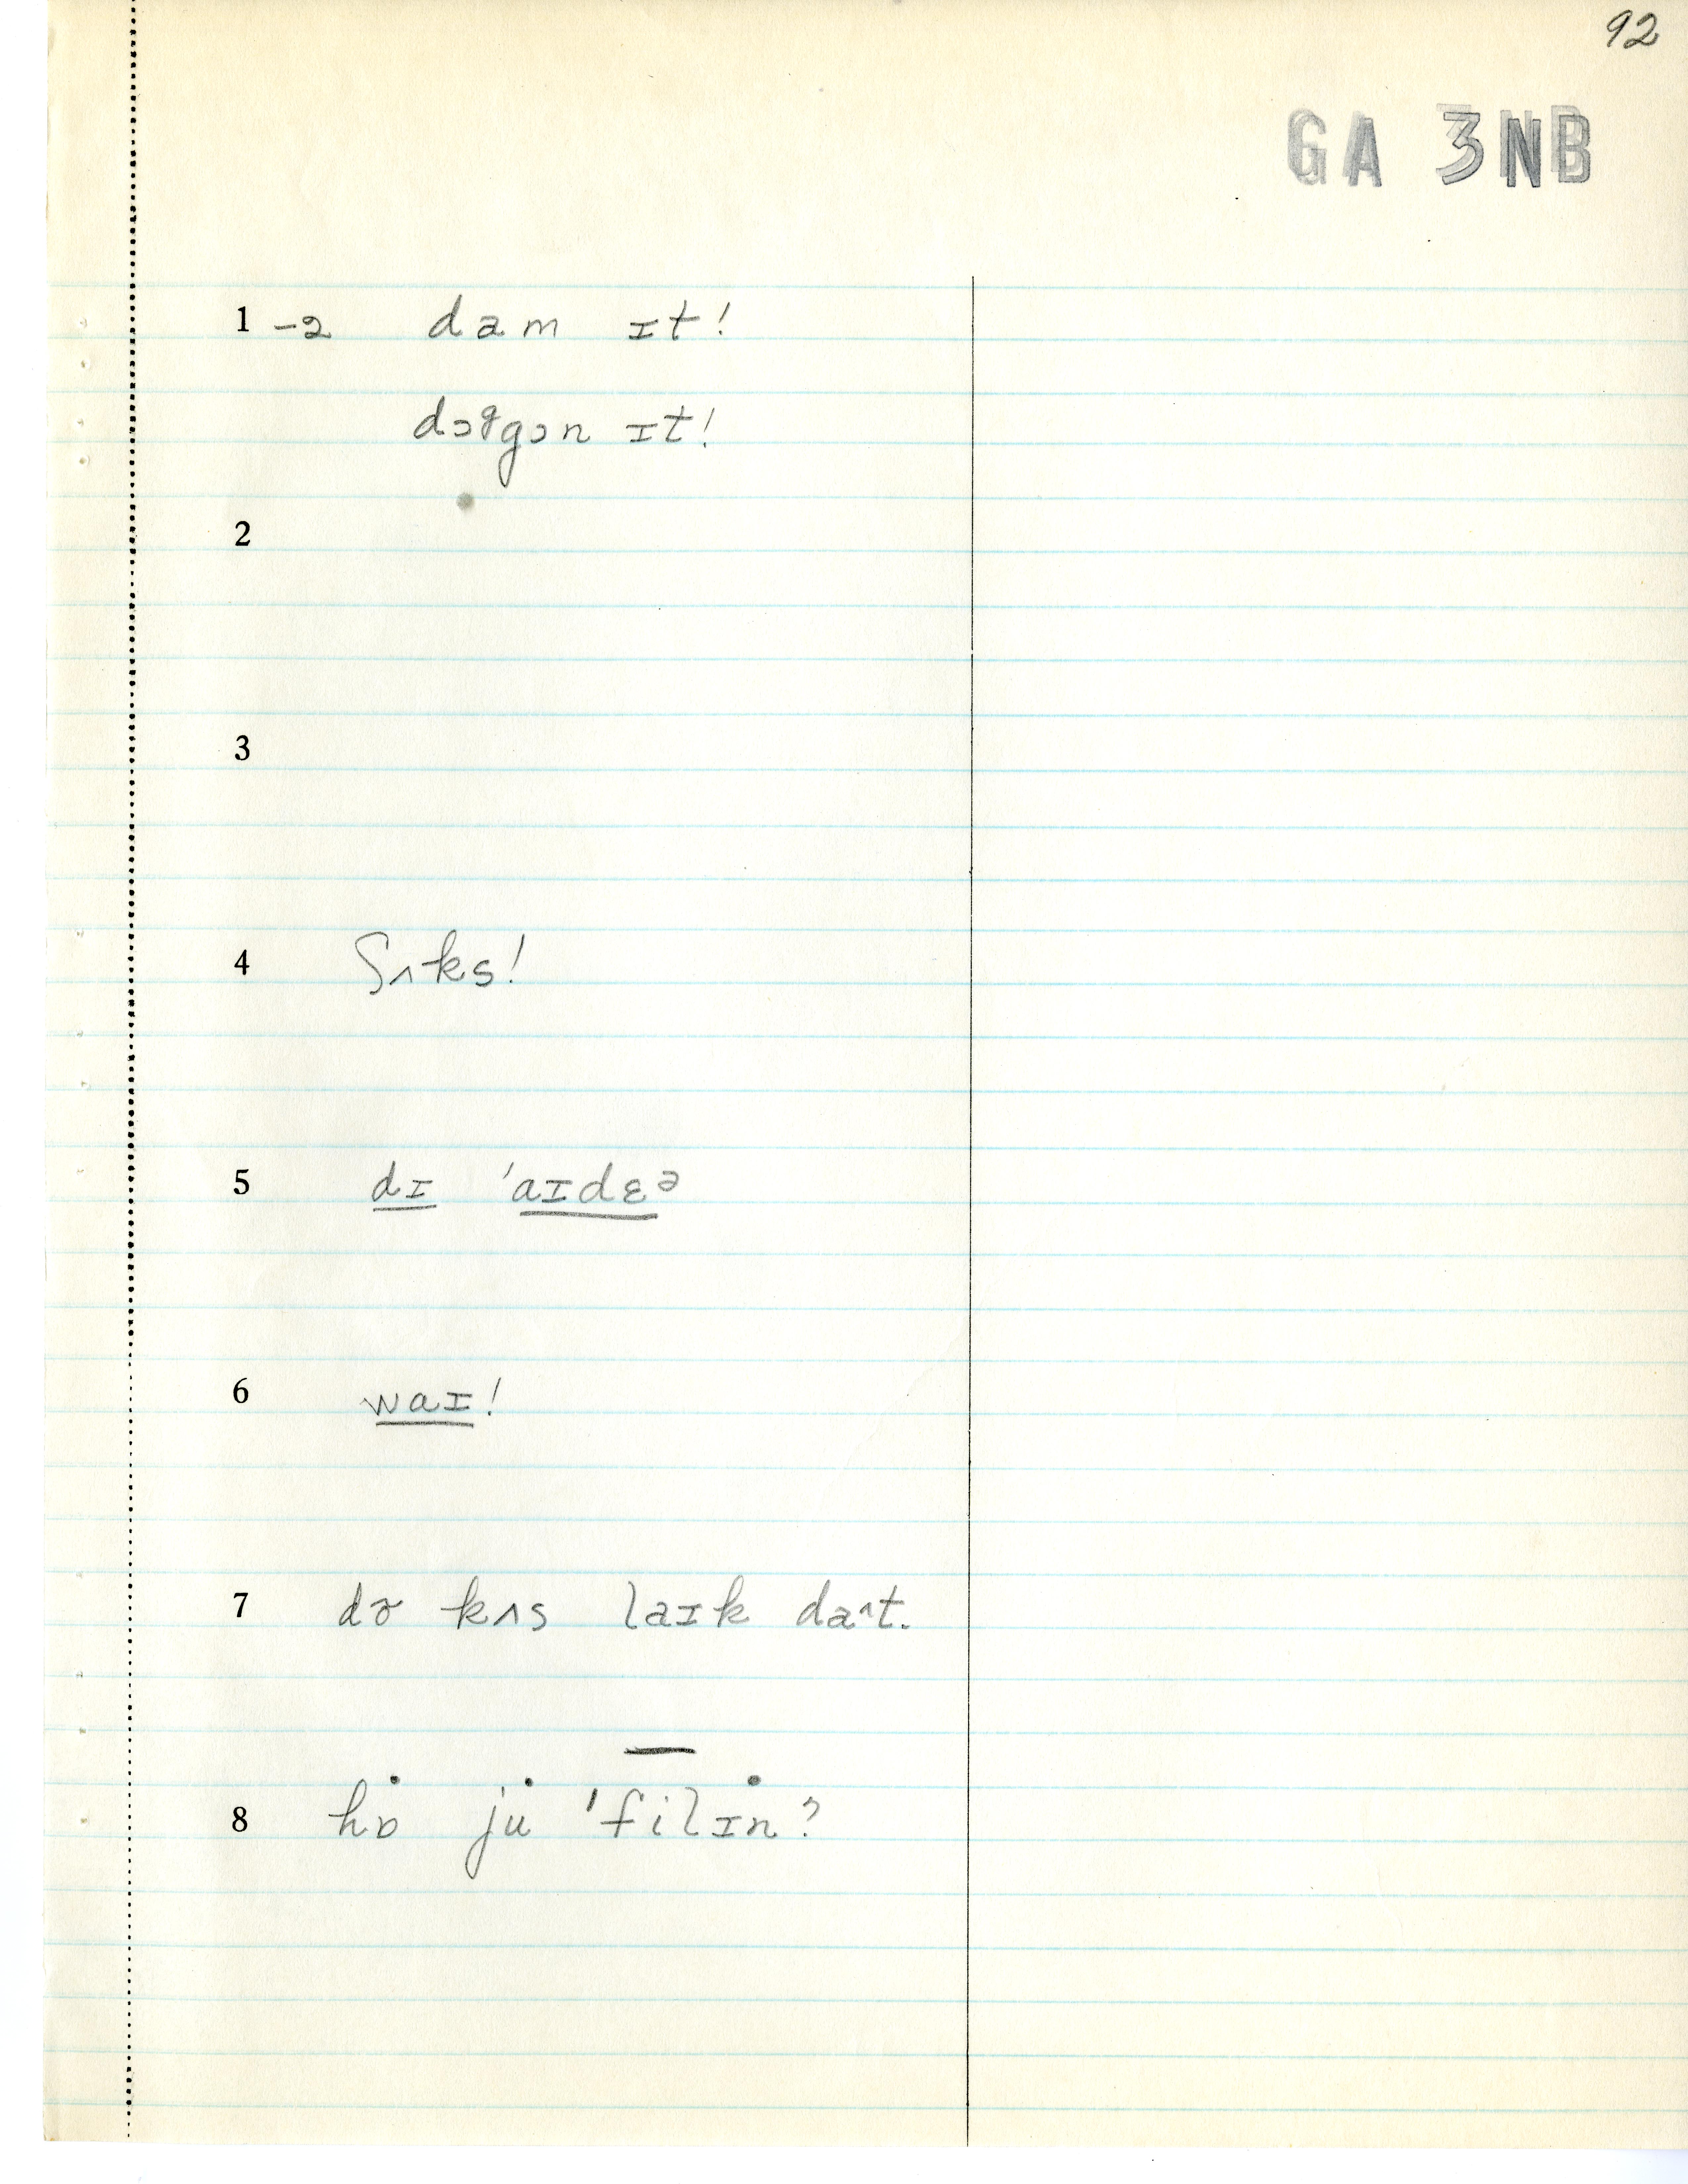 92
GA 3NB
1 -2 dam ɪt!
dɔᶢgɔn ɪt!
2
3
4 ʃʌks!
5 dɪ 'aɪdɛᵊ
6 waɪ!
7 dɚ kʌs laɪk da^t.
8 hɒ̇ ju̇ 'filɪ̇n?